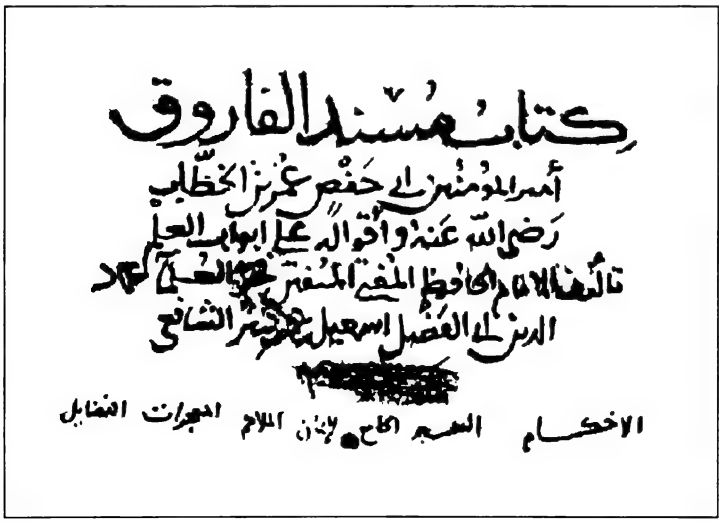 كتاب مسند الفاروق
أمير المؤمنين أبي حفص عمر بن الخطاب
رضي الله عنه وأقواله على أبواب العلم
تأليف الإمام الحافظ المفتي المفسر عماد
الدين أبي الفضل إسمعيل بن كثير الشافعي
الاحكام التفسير الملاحم المعجزات الفضائل